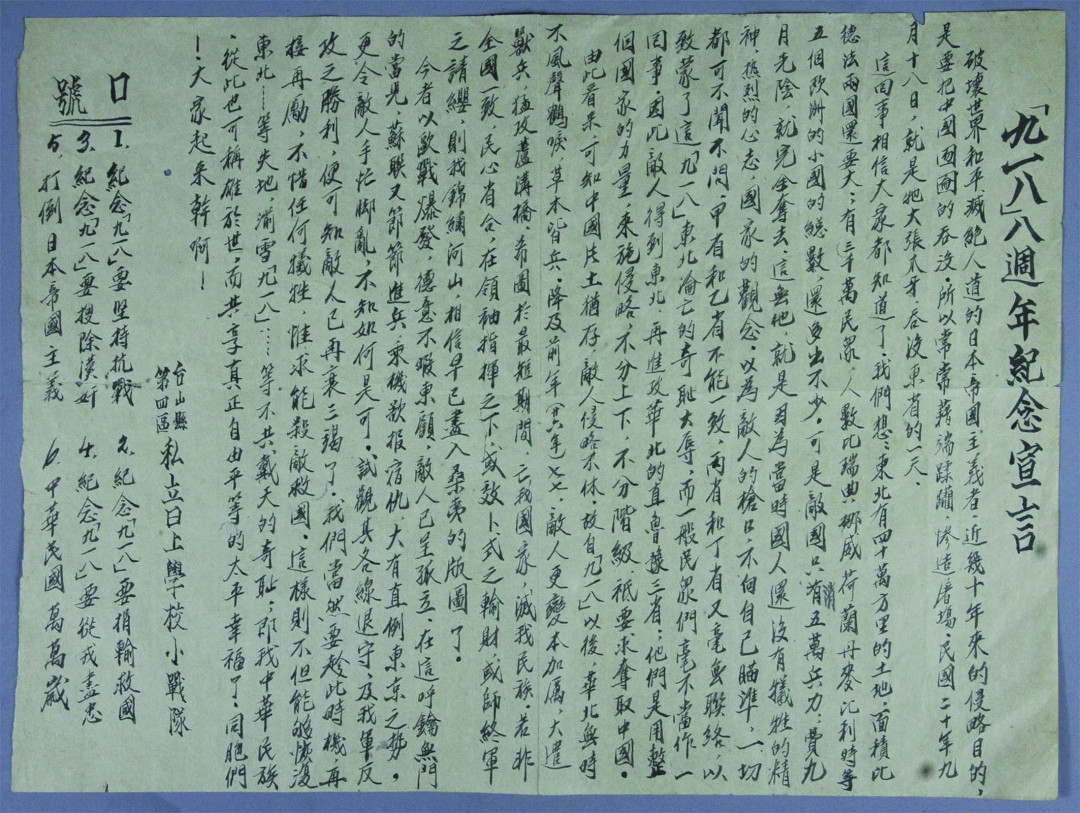 「九一八」八週年紀念宣言
破壞世界和平滅絕人道的日本帝國主義者，近幾十年來的侵略目的，
是要把中國囫圇的吞沒，所以常常藉端蹂躪，慘造屠塲，民國二十年九
月十八日，就是牠大張爪牙，吞沒東省的一天。
這回事相信大家都知道了，我們想：東北有四十萬方里的土地，面積比
德法兩國還要大；有三千萬民眾，人數比瑞典，挪威，荷蘭，丹麥，比利時等
五個歐洲的小國的總數，還多出不少。可是敵國只消有五萬兵力，費九
月光陰，就完全奪去，這無他，就是因為當時國人還沒有犧牲的精
神，熱烈的心志，國家的觀念，以為敵人的槍口，不向自己瞄準，一切
都可不聞不問，甲省和乙省不能一致，丙省和丁省又毫無聯絡，以
致蒙了這「九一八」東北淪亡的奇耻大辱，而一般民眾們毫不當作一
回事，因此敵人得到東北，再進攻華北的直魯豫三省；他們是用整
個國家的力量，來施侵略，不分上下，不分階級，祇要求奪取中國。
由此看來，可知中國片土猶存，敵人侵略不休，故自「九一八」以後，華北無時
不風聲鶴唳，草木皆兵，降及前年（廿六年）七七，敵人更變本加厲，大運
獸兵，猛攻蘆溝橋，希圖於最短期間，亡我國家，滅我民族，若非
全國一致，民心首合，在領袖指揮之下，或效卜式之輸財，或師終軍
之請纓，則我錦繡河山，相信早已盡入桑夷的版圖了。
今者以歐戰爆發，德意不暇東顧，敵人已呈孤立，在這呼籲無門
的當兒，蘇聯又節節進兵，乘機欲报宿仇，大有直倒東京之勢。
更令敵人手忙脚亂，不知如何是可，試觀其各線退守，及我軍反
攻之勝利，便可知敵人已再衰三竭了。我們當然要趁此時機，再
接再勵，不惜任何犧牲，惟求能殺敵救國，這樣則不但能够恢復
東北……等失地，湔雪「九一八」……等不共戴天的奇耻；即我中華民族
，從此也可稱雄於世，而共享真正自由平等的太平幸福了，同胞們
！大家起來幹啊！
台山縣
第四區
私立日上學校小戰隊
口號
1. 紀念「九一八」要堅持抗戰
2. 紀念「九一八」要捐輸救國
3. 紀念「九一八」要搜除漢奸
4. 紀念「九一八」要從戎盡忠
5. 打倒日本帝國主義
6. 中華民國萬萬歲